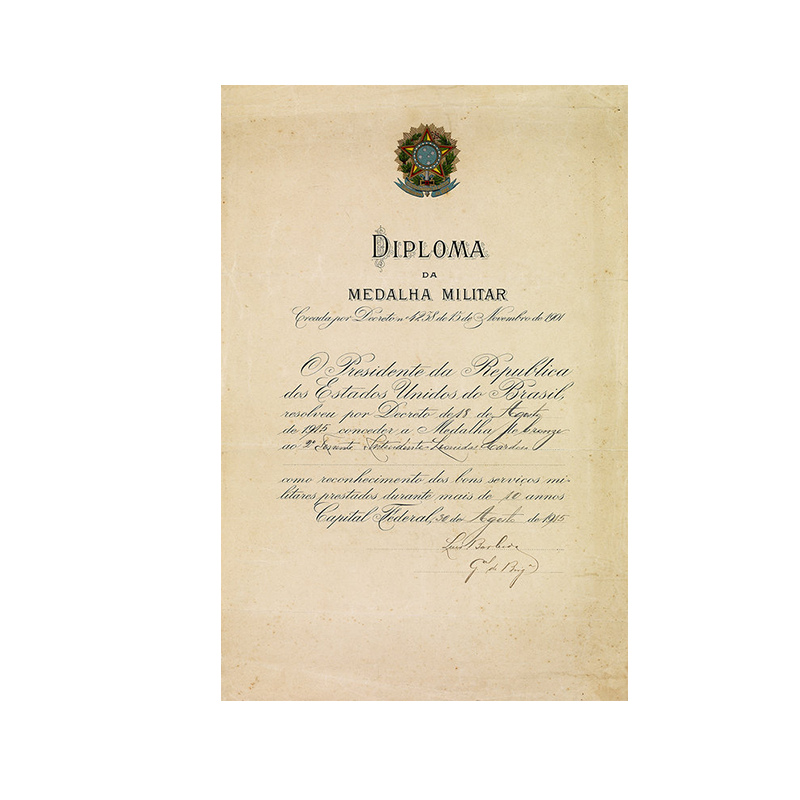 DIPLOMA
DA
MEDALHA MILITAR
Creada por Decreto nº 4238 de 15 de Novembro de 1901
O Presidente da Republica
dos Estados Unidos do Brasil,
resolveu por Decreto de 18 de Agosto
de 1915 conceder a Medalha de bronze
ao 2º Tenente Intendente Leonidas Cardoso
como reconhecimento dos bons serviços mi-
litares prestados durante mais de 10 annos
Capital Federal, 30 de Agosto de 1915
Luiz Barbedo
Gal de Brigª